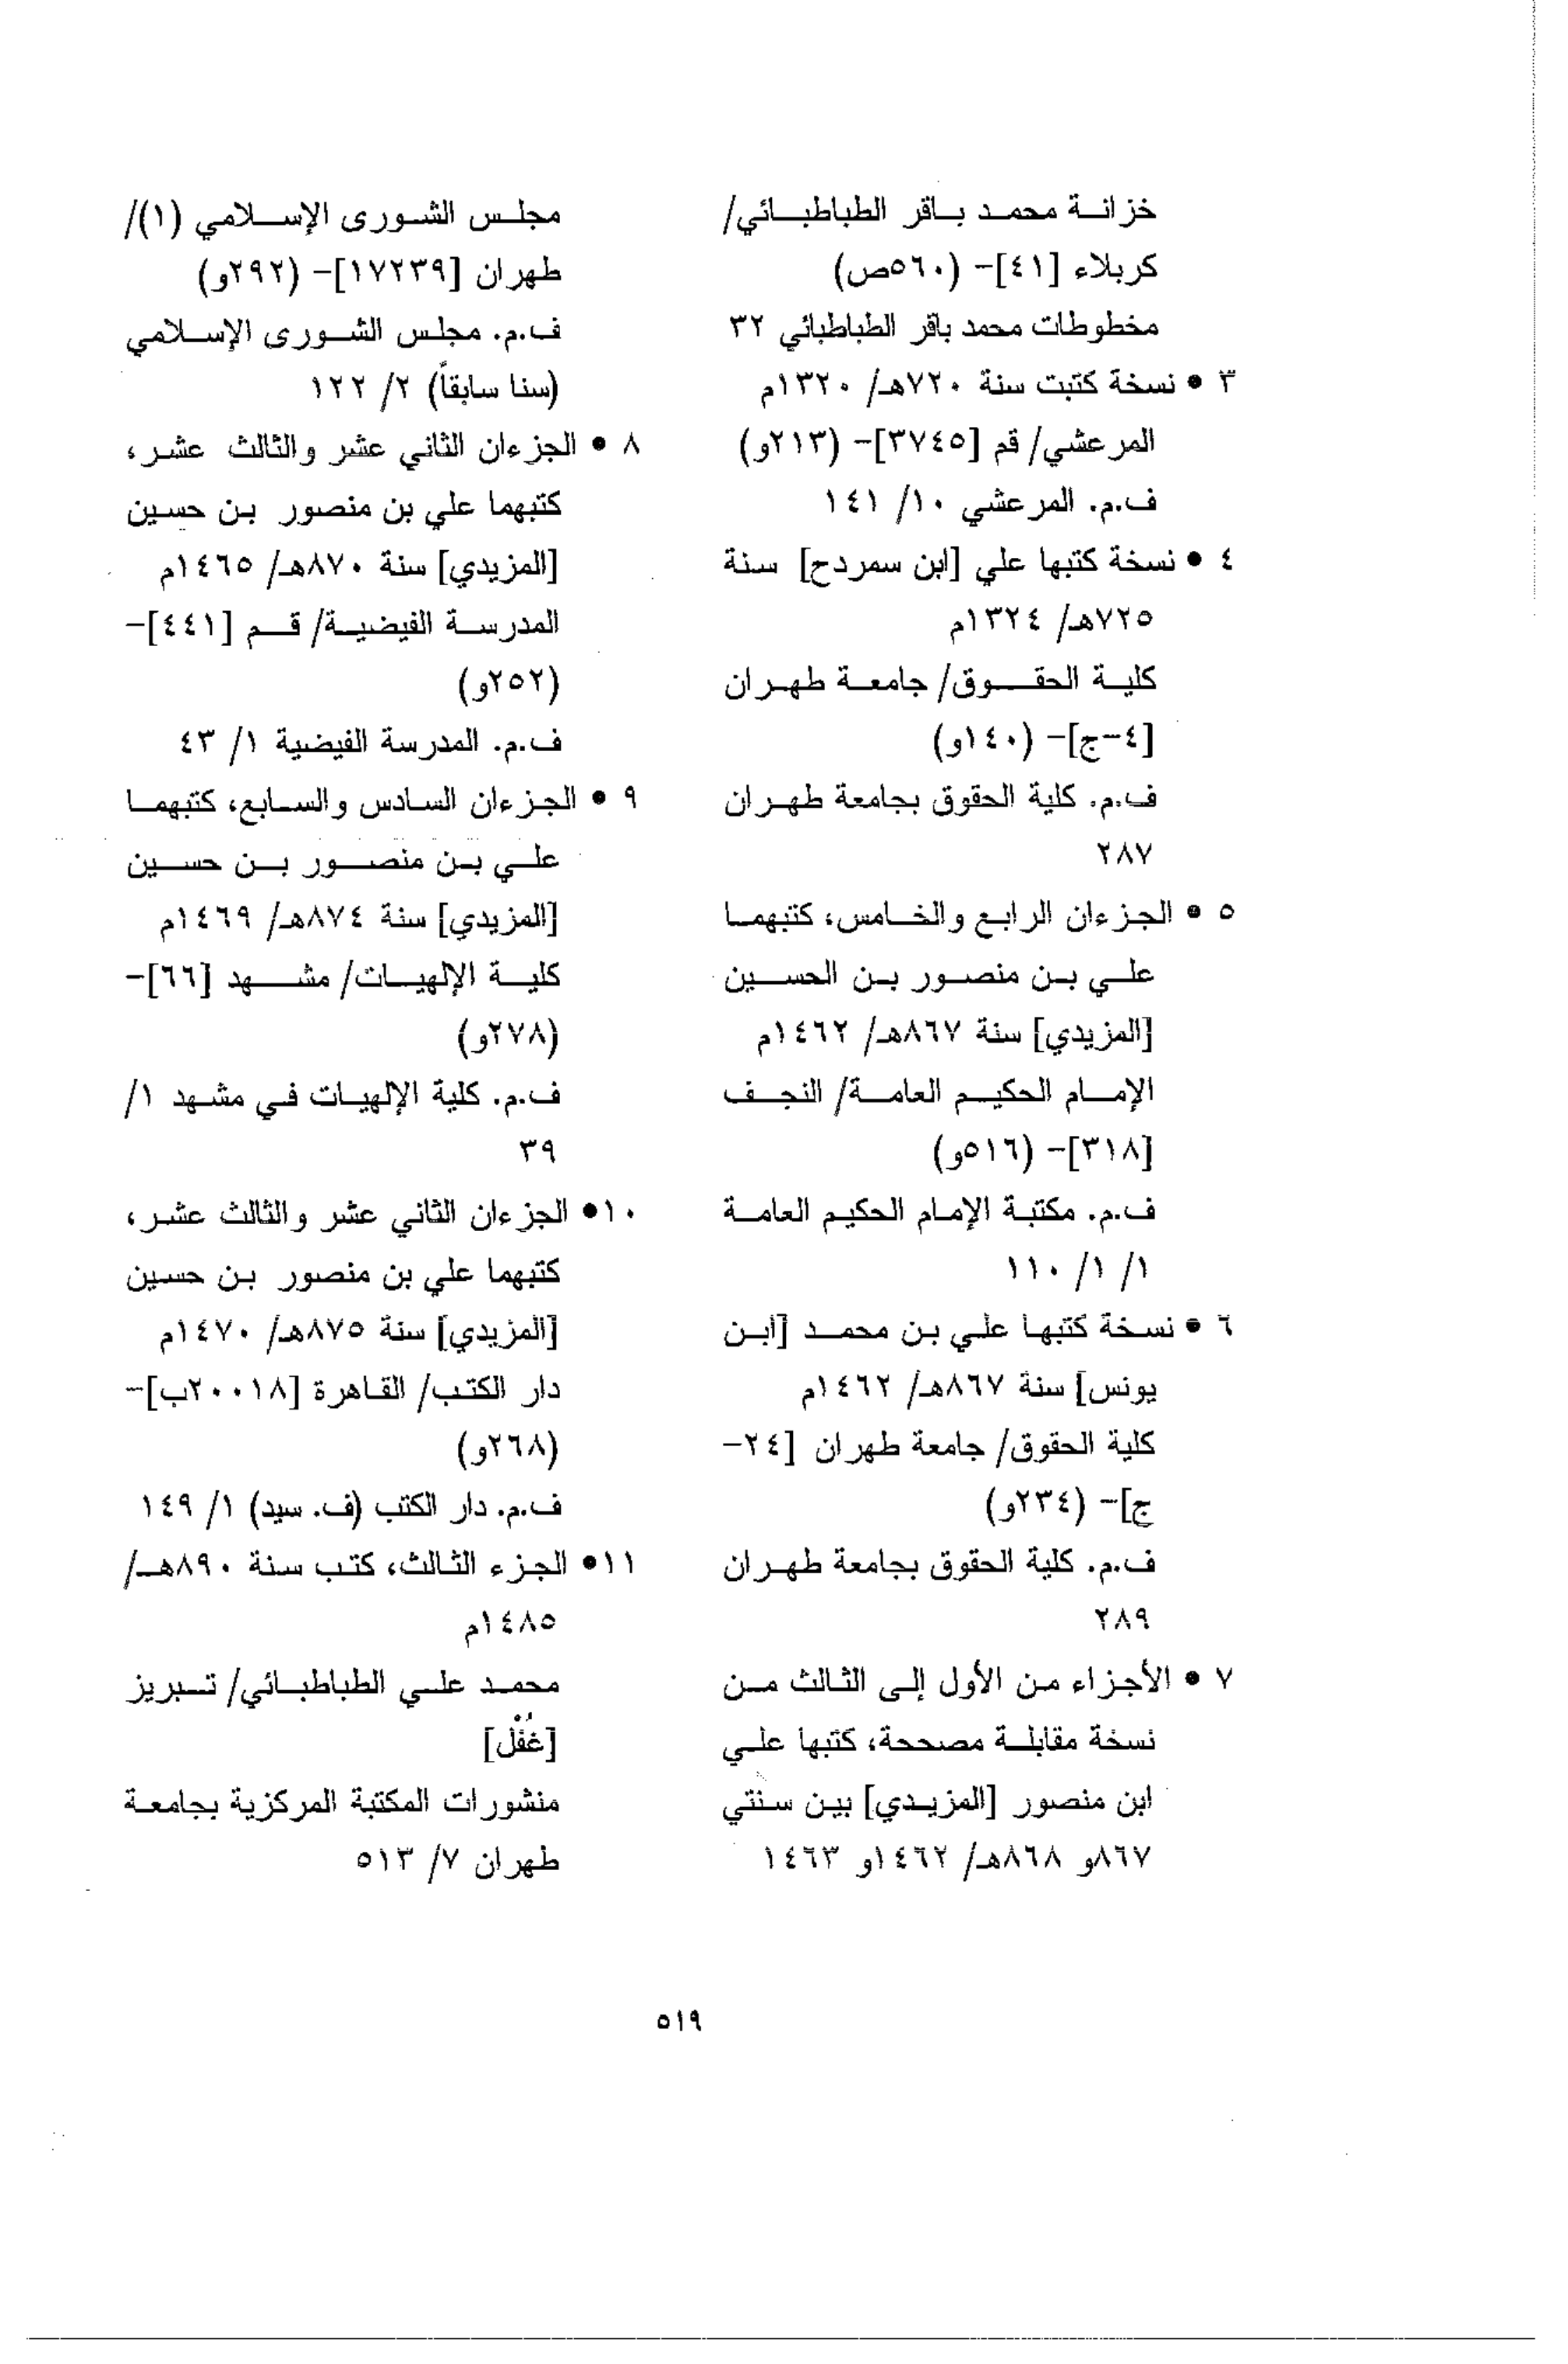 خزانة محمد باقر الطباطبائي/
كربلاء [٤١]- (٥٦٠ص)
مخطوطات محمد باقر الطباطبائي ٣٢
٣ • نسخة كتبت سنة ٧٢٠هـ/ ١٣٢٠م
المرعشي/ قم [٣٧٤٥]- (٢١٣و)
ف.م. المرعشي ١٠/ ١٤١
٤ • نسخة كتبها علي [ابن سمردح] سنة
٧٢٥هـ/ ١٣٢٤م
كلية الحقوق/ جامعة طهران
[٤-ج]- (١٤٠و)
ف.م. كلية الحقوق بجامعة طهران
٢٨٧
٥ • الجزءان الرابع والخامس، كتبهما
علي بن منصور بن الحسين
[المزيدي] سنة ٨٦٧هـ/ ١٤٦٢م
الإمام الحكيم العامة/ النجف
[٣١٨]- (٥١٦و)
ف.م. مكتبة الإمام الحكيم العامة
١/ ١/ ١١٠
٦ • نسخة كتبها علي بن محمد [ابن
يونس] سنة ٨٦٧هـ/ ١٤٦٢م
كلية الحقوق/ جامعة طهران [٢٤-
ج]- (٢٣٤و)
ف.م. كلية الحقوق بجامعة طهران
٢٨٩
٧ • الأجزاء من الأول إلى الثالث من
نسخة مقابلة مصححة، كتبها علي
ابن منصور [المزيدي] بين سنتي
٨٦٧و ٨٦٨هـ/ ١٤٦٢و ١٤٦٣
مجلس الشورى الإسلامي (١)/
طهران [١٧٢٣٩]- (٢٩٢و)
ف.م. مجلس الشورى الإسلامي
(سنا سابقاً) ٢/ ١٢٢
٨ • الجزءان الثاني عشر والثالث عشر،
كتبهما علي بن منصور بن حسين
[المزيدي] سنة ٨٧٠هـ/ ١٤٦٥م
المدرسة الفيضية/ قم [٤٤١]-
(٢٥٢و)
ف.م. المدرسة الفيضية ١/ ٤٣
٩ • الجزءان السادس والسابع، كتبهما
علي بن منصور بن حسين
[المزيدي] سنة ٨٧٤هـ/ ١٤٦٩م
كلية الإلهيات/ مشهد [٦٦]-
(٢٧٨و)
ف.م. كلية الإلهيات في مشهد ١/
٣٩
١٠• الجزءان الثاني عشر والثالث عشر،
كتبهما علي بن منصور بن حسين
[المزيدي] سنة ٨٧٥هـ/ ١٤٧٠م
دار الكتب/ القاهرة [٢٠٠١٨ب]-
(٢٦٨و)
ف.م. دار الكتب (ف. سيد) ١/ ١٤٩
١١• الجزء الثالث، كتب سنة ٨٩٠هـ/
١٤٨٥م
محمد علي الطباطبائي/ تبريز
[غُفْل]
منشورات المكتبة المركزية بجامعة
طهران ٧/ ٥١٣
٥١٩